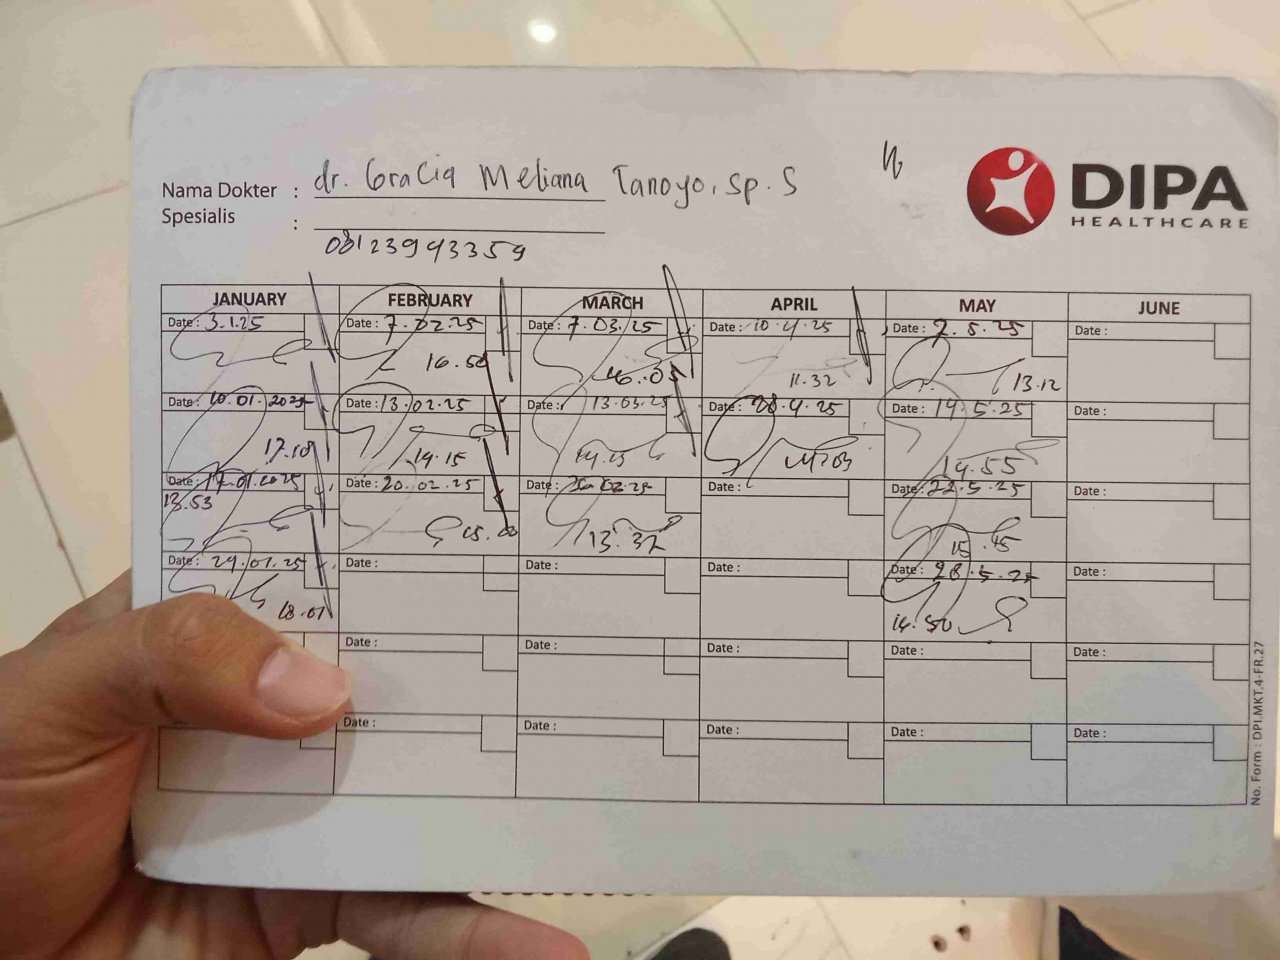 Nama Dokter : dr. Gracia Meliana Tanoyo, Sp. S
Spesialis :
08123943359
DIPA
HEALTHCARE
JANUARY FEBRUARY MARCH APRIL MAY JUNE
Date : 3.1.25 Date : 7.02.25 Date : 7.03.25 Date : 10.4.25 Date : 2.5.25 Date :
16.50 16.05 11.32 13.12
Date : 10.01.2025 Date : 13.02.25 Date : 13.03.25 Date : 28.4.25 Date : 14.5.25 Date :
17.18 14.15 14.13 14.55
Date : 17.01.2025 Date : 20.02.25 Date : Date : Date : 22.5.25 Date :
13.53 15.00 13.37 15.45
Date : 29.01.25 Date : Date : Date : Date : 28.5.25 Date :
18.01 14.50
Date : Date : Date : Date : Date :
Date : Date : Date : Date : Date :
No. Form : DPI.MKT.4-FR.27